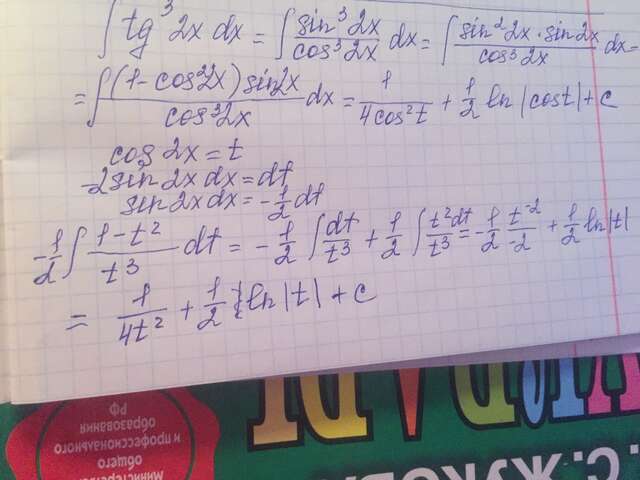 ∫ tg³ 2x dx = ∫ sin³ 2x / cos³ 2x dx = ∫ sin² 2x · sin 2x / cos³ 2x dx =
= ∫ (1 - cos² 2x) sin 2x / cos³ 2x dx = 1 / 4cos² t + 1/2 ln |cos t| + c
cos 2x = t
-2 sin 2x dx = dt
sin 2x dx = - 1/2 dt
- 1/2 ∫ 1 - t² / t³ dt = - 1/2 ∫ dt / t³ + 1/2 ∫ t² dt / t³ = - 1/2 t⁻² / -2 + 1/2 ln |t|
= 1 / 4t² + 1/2 ln |t| + c
РФ
образования
и профессионального
общего
Министерс
С. ЖУКО